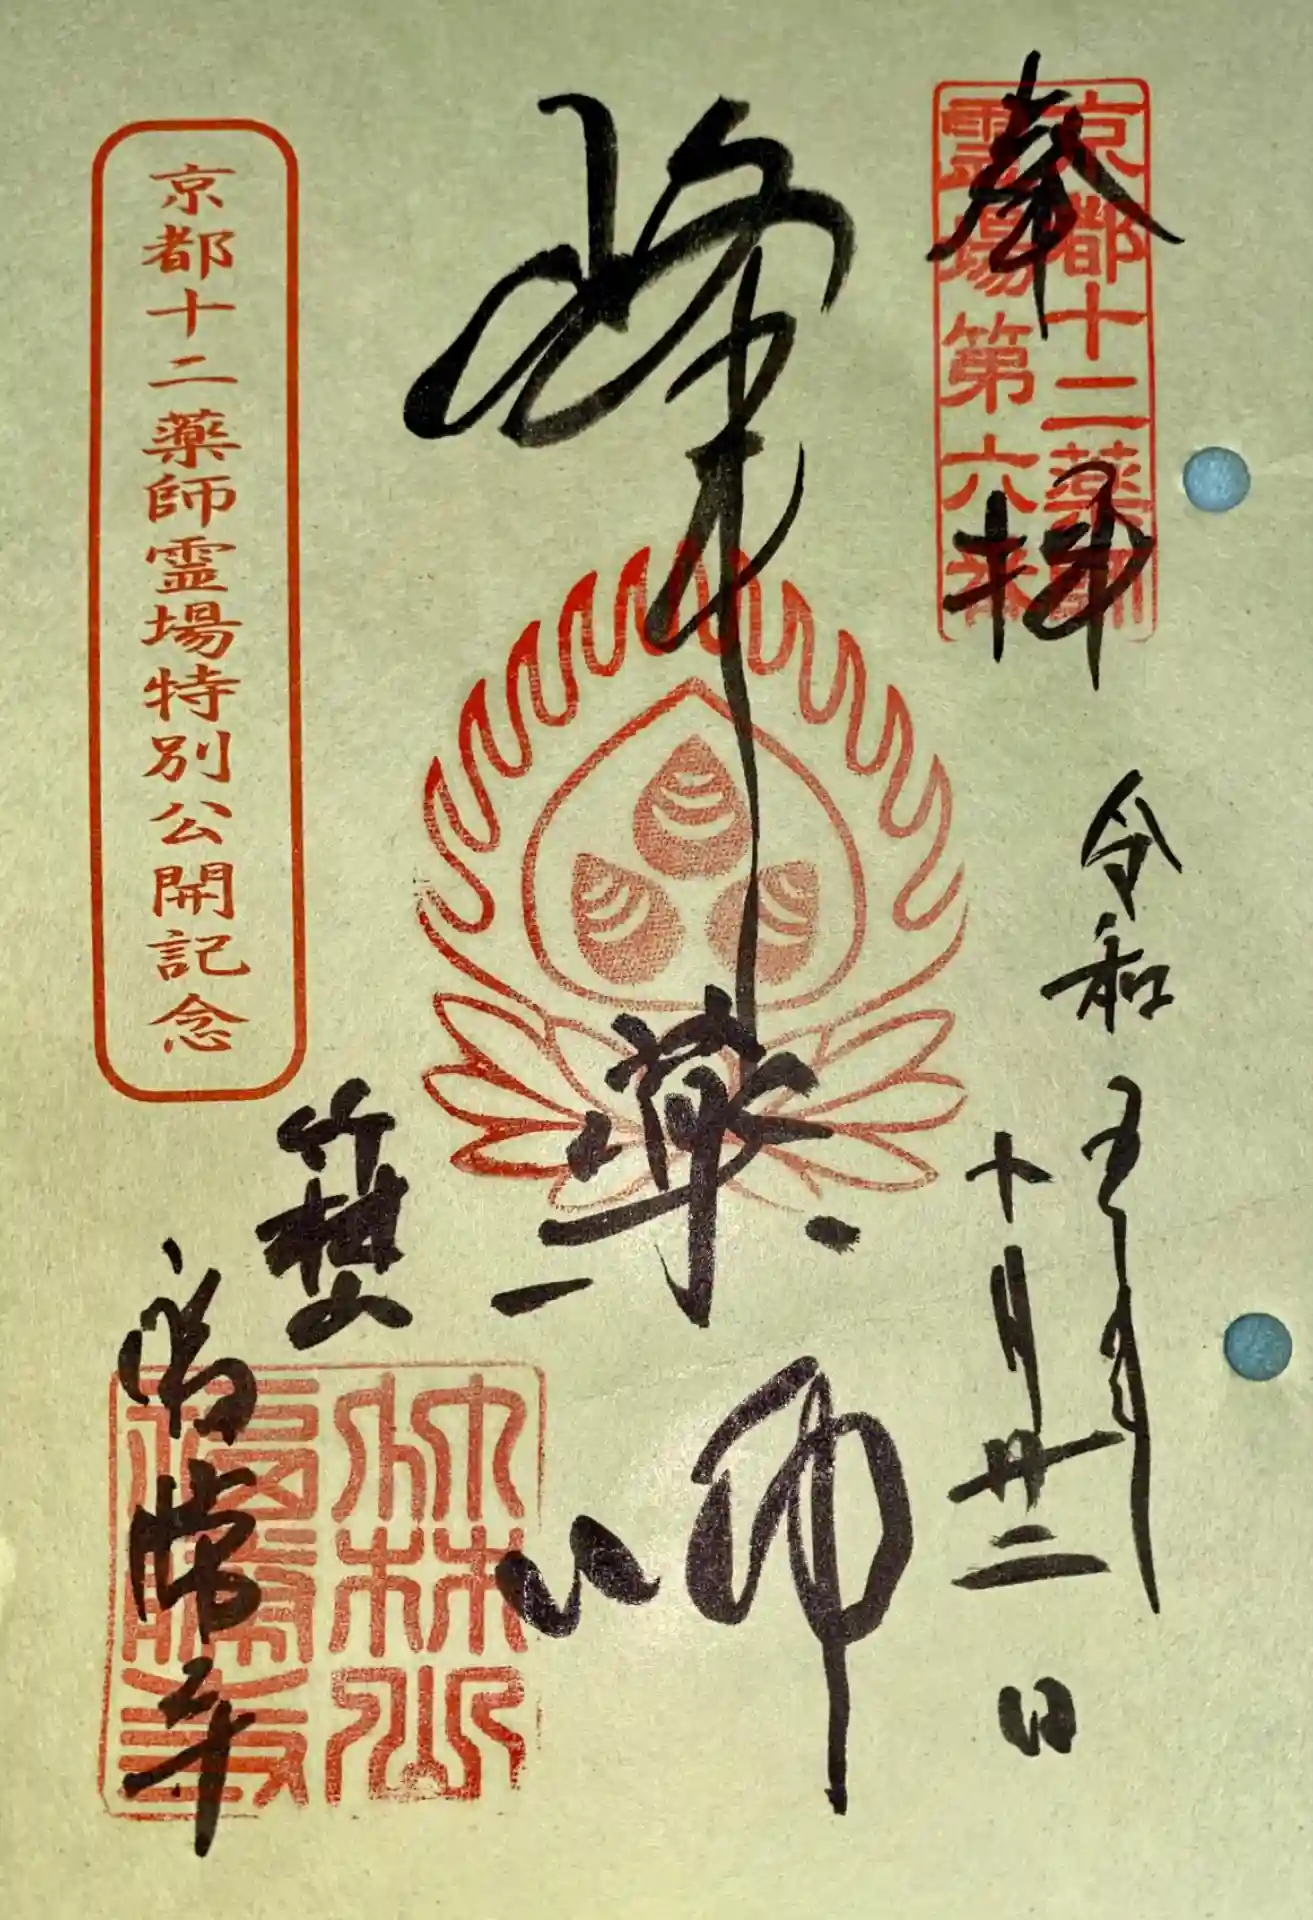 京都十二薬師
霊場第六番
奉拝
令和五年
十月廿二日
峰薬師
竹林山
福勝寺
竹林山
福勝寺
京都十二薬師霊場特別公開記念